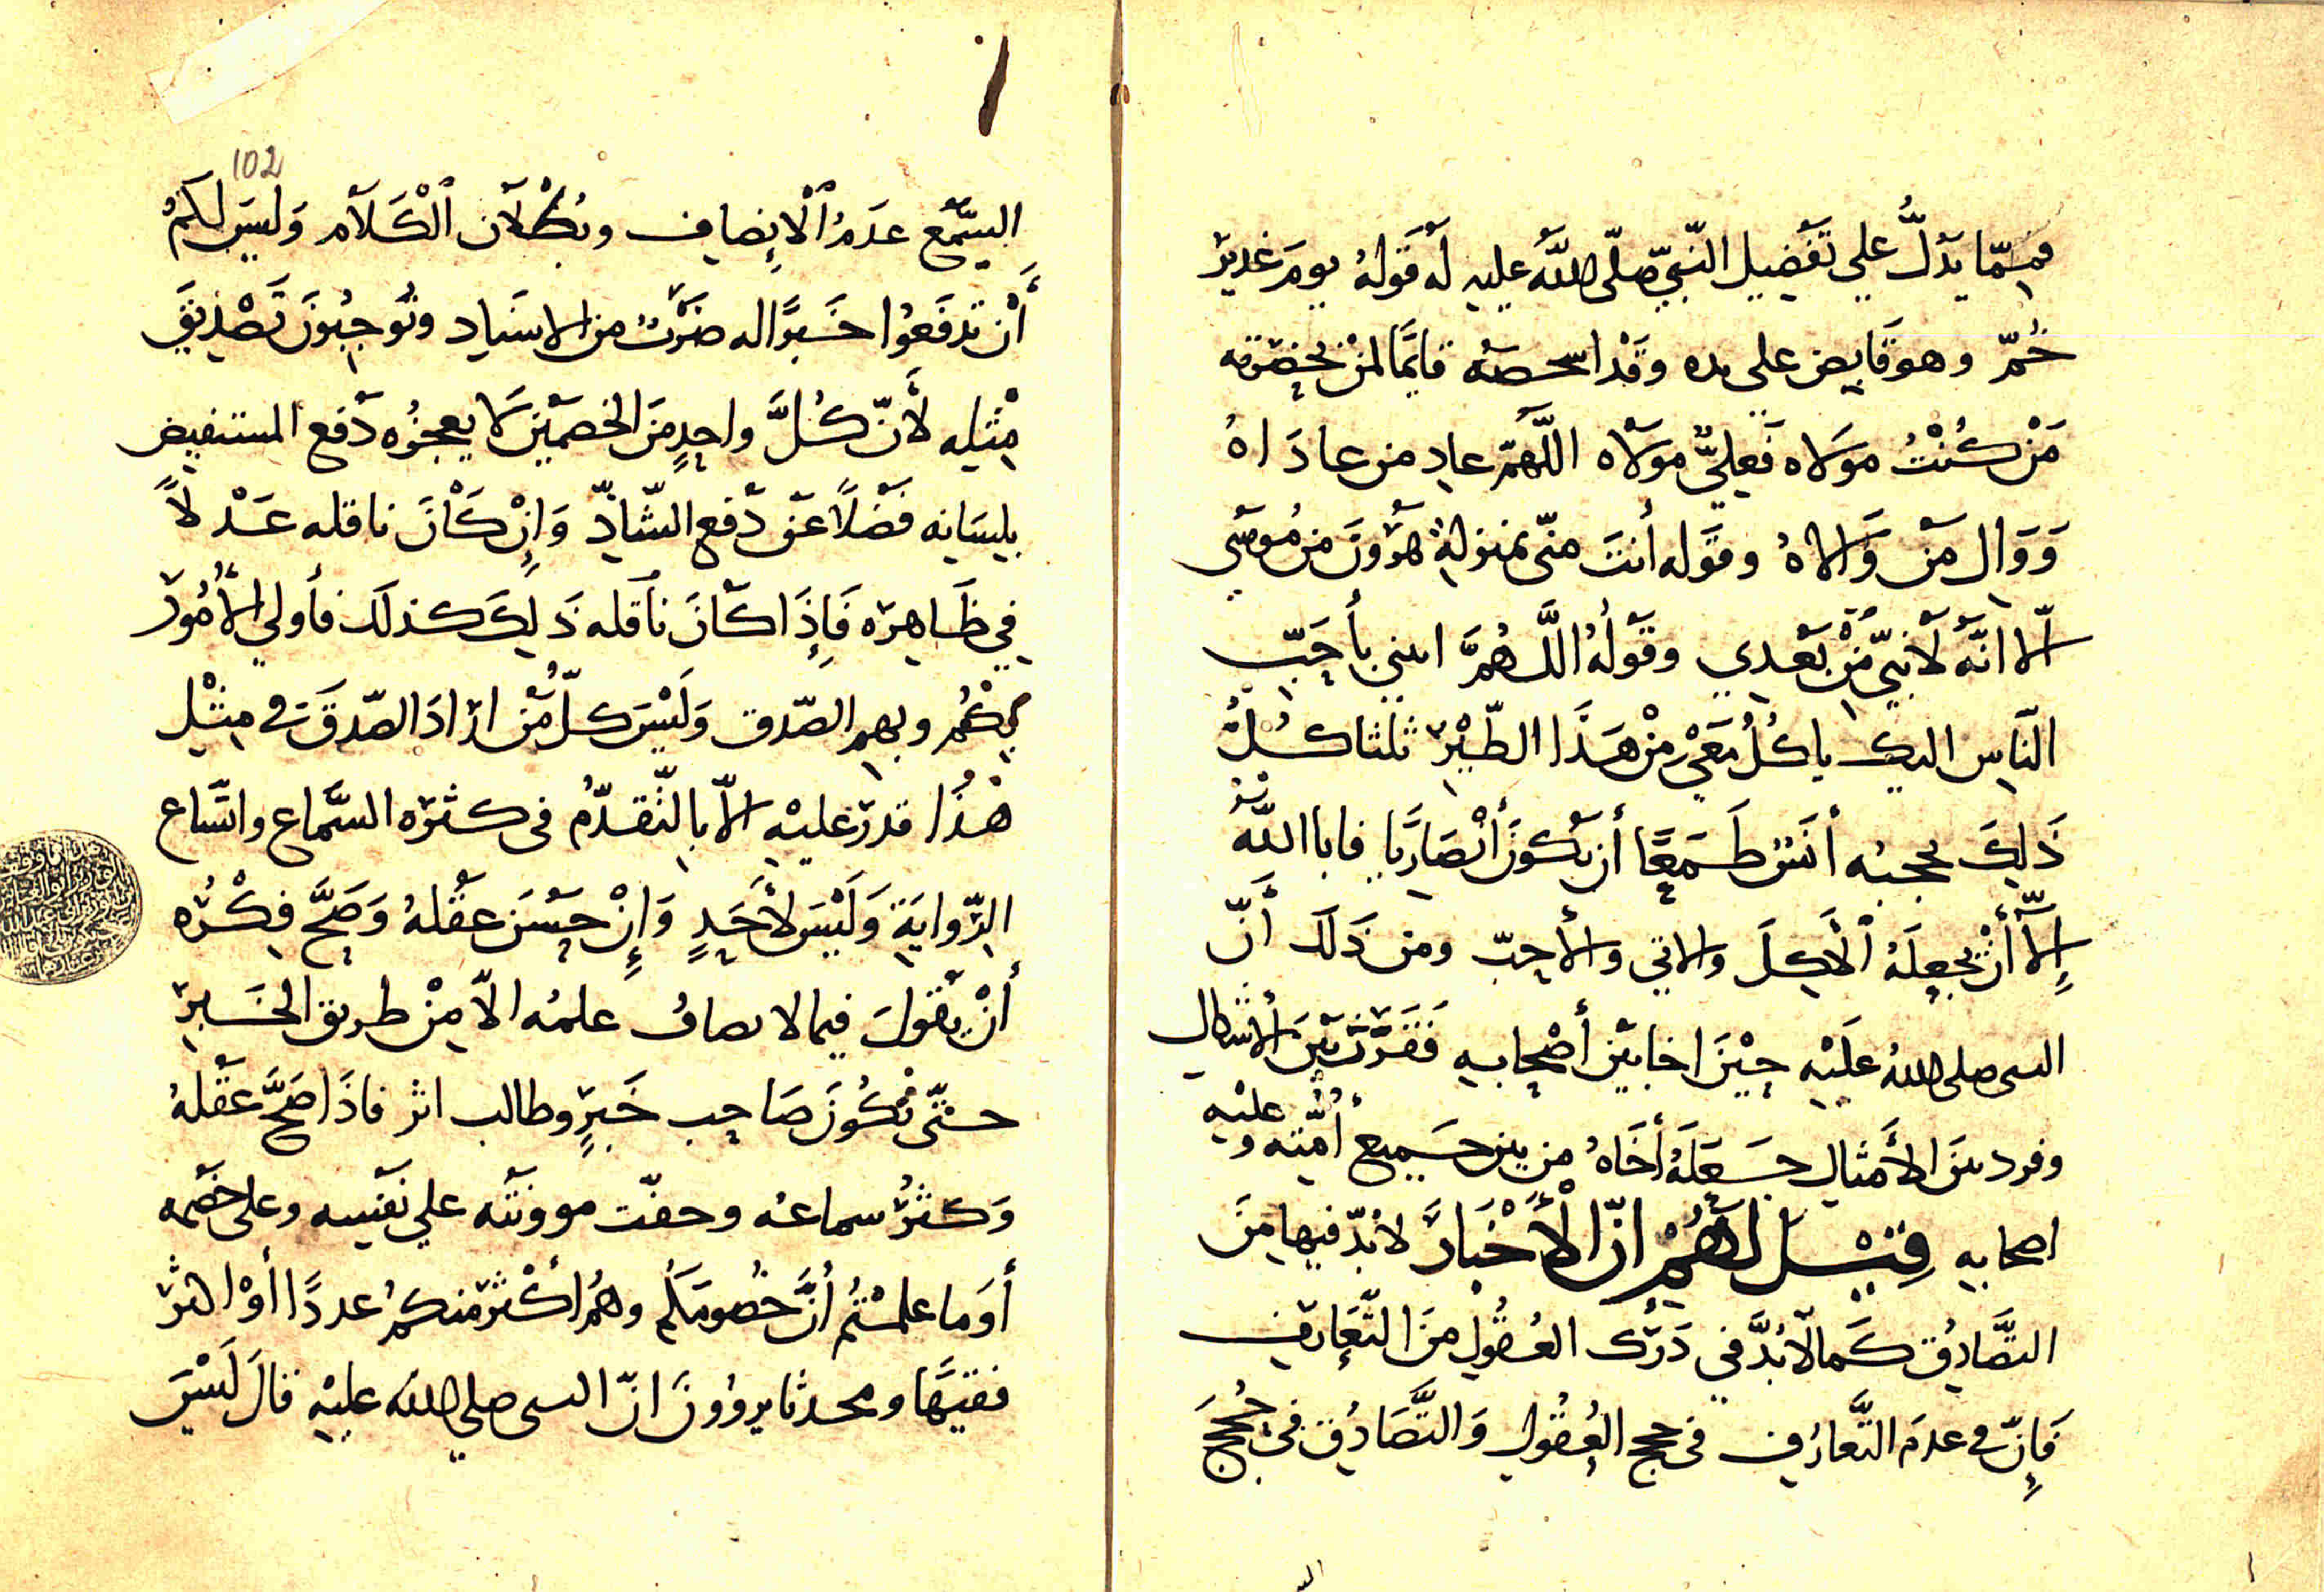 فممّا يدلُّ علي تَفضِيل النّبيّ صلّى الله عليه له قوله يومَ غدير
خُمّ وهو قابض على يده وقد اشخصه قائمًا لمن بحضرته
مَنْ كُنْتُ مولاه فَعليٌّ مولاه اللّهمّ عادِ من عادَاهُ
وَوَالِ مَن وَالاهُ وقوله أنتَ منّى بمنزلة هرُونَ من مُوسَى
إلّا انّه لا نبيّ مِنْ بَعْدِي وقولُه اللَّهُمَّ ايتني بأحَبّ
النّاسِ اليك ياكُلُ مَعِي مِنْ هَذَا الطّيْرِ ثلثا كُلُّ
ذَلِكَ يحجبُه أنَس طَمَعًا أن يكونَ أنْصَاريًّا فابا اللّه
إِلّا أنْ يجعلَهُ الآكِلَ والاتي والأحبّ ومن ذَلك أنّ
النبى صلى اللهُ عَلَيْهِ حِيْنَ اخا بَيْنَ أصْحابِهِ فَقَرَنَ بَيْنَ الأشكالِ
وفرد بينَ الأمثالِ جَعَلَهُ أخَاهُ من بين جَمِيع أمّته و عليْه
اصحابِهِ قِيْلَ لَهُمْ انّ الأَخْبَارَ لابُدّ فيها مِنَ
التَّصَادُق كَما لا بُدَّ في دَرْك العُقُولِ مِنَ التَّعَارُفِ
فَإنّ في عدمِ التَّعارُفِ فى حجج العُقُولِ وَالتَّصَادُق فِى حُجَج
102
السَّمْع عدَمُ الْإنصافِ وبُطْلان الْكَلَام وَليسَ لَكُمْ
أنْ تَدفَعُوا خَبرًا له ضَرْبٌ من الاسنادِ وتُوجِبُونَ تَصْدِيقَ
مِثْلِه لأنّ كُلَّ واحِدٍ مِنَ الخصمَيْنِ لا يعجزُه دَفع المستفيض
بلِسَانِه فَضْلًا عَنْ دَفعِ الشّاذّ وَإنْ كَانَ ناقله عَدْلًا
فِي ظَاهِرِه فَإِذَا كَانَ ناقله ذَلِكَ كذلك فأولي الأُمُورِ
بِكُمْ وبهم الصّدق وَلَيْسَ كلّ مَنْ ارَادَ الصّدقَ فى مِثْلِ
هَذَا قدرَ عليْهِ الّا بالتّقدّمُ فى كثرَه السَّماع واتّساع
الرِّوايَةِ وَلَيْسَ لأَحَدٍ وَإنْ حَسُنَ عقلُهُ وَصَحَّ فِكْرُه
أنْ يَقُولَ فيما لا يصابُ علمُه الّا مِنْ طريق الخَبرِ
حتّى يكُونَ صَاحِب خَبرٍ وطالب اثر فاذَا صَحَّ عَقْلهُ
وَكثرُ سماعُه وخفّت موونَتُه علي نَفْسِه وعلى خَصْمه
أوَما علمْتُم أنَّ خُصومَكُم وهُم أكثَر منكمُ عددًا أوْ اكثر
فقيهًا ومحدثا يروُونَ انّ النبى صلي الله عليْهِ قالَ لَيْسَ